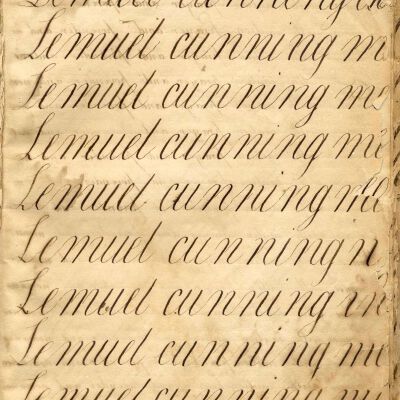 Lemuel cunning
Lemuel cunning
Lemuel cunning
Lemuel cunning
Lemuel cunning
Lemuel cunning
Lemuel cunning
Lemuel cunning
Lemuel cunning
Lemuel cunning